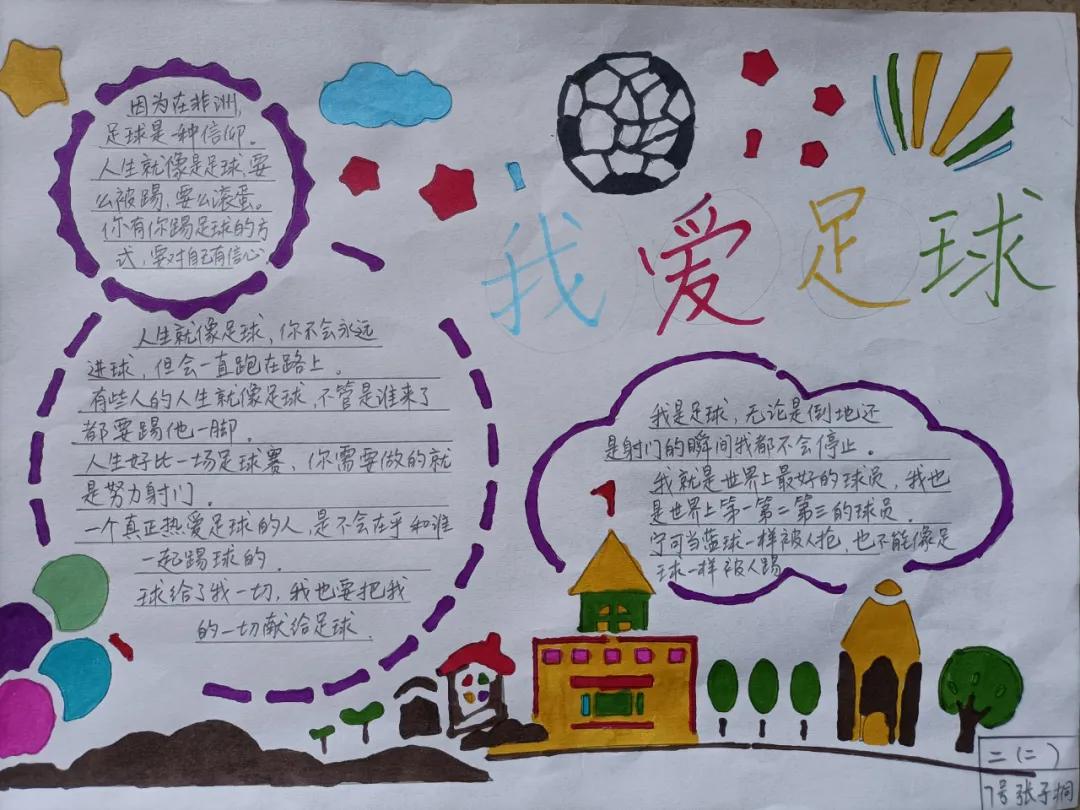 我爱足球
因为在非洲,
足球是一种信仰.
人生就像是足球,要
么被踢,要么滚蛋。
你有你踢足球的方
式,要对自己有信心
人生就像足球,你不会永远
进球,但会一直跑在路上。
有些人的人生就像足球,不管是谁来了
都要踢他一脚.
人生好比一场足球赛、你需要做的就
是努力射门.
一个真正热爱足球的人,是不会在乎和谁
一起踢球的.
球给了我一切,我也要把我
的一切献给足球.
我是足球,无论是倒地还
是射门的瞬间我都不会停止。
我就是世界上最好的球员,我也
是世界上第一第二第三的球员.
宁可当蓝球一样被人抢,也不能像足
球一样被人踢
二(二)
7号张子桐